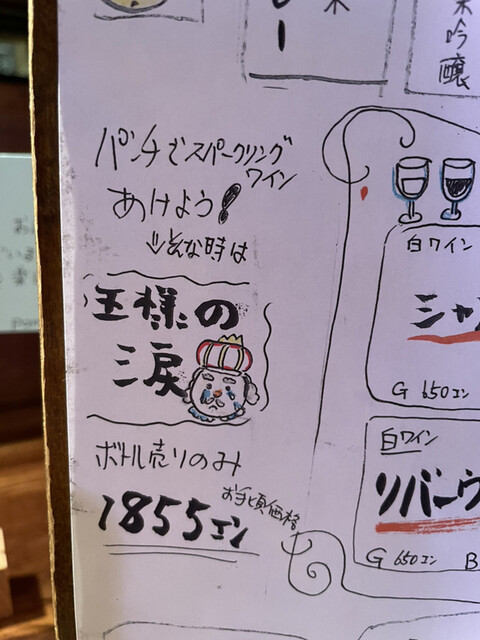 吟醸
パンチでスパークリング
ワイン
あけよう!
↓そんな時は
王様の
涙
ボトル売りのみ
お手頃価格
1855エン
白ワイン
シャ
G 650エン
白ワイン
リバーウ
G 650エン B